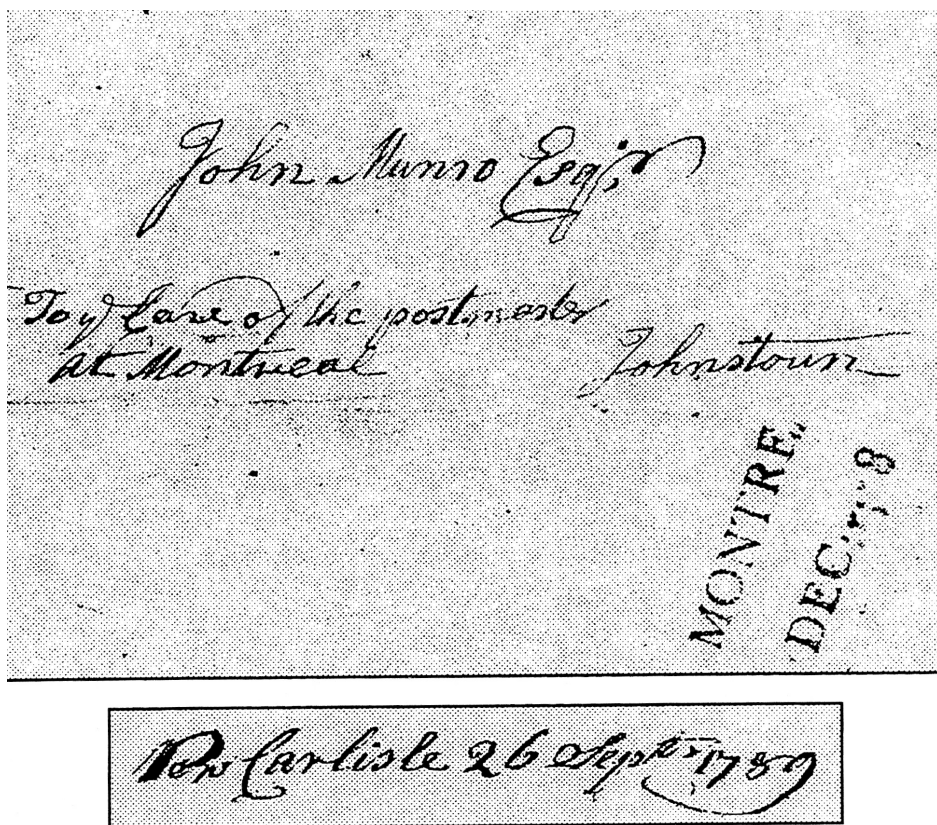 John Munro Esq;r
To ye Care of the postmaster
at Montreal
Johnstown
MONTRE
DEC 8
Carlisle 26 Septr 1789